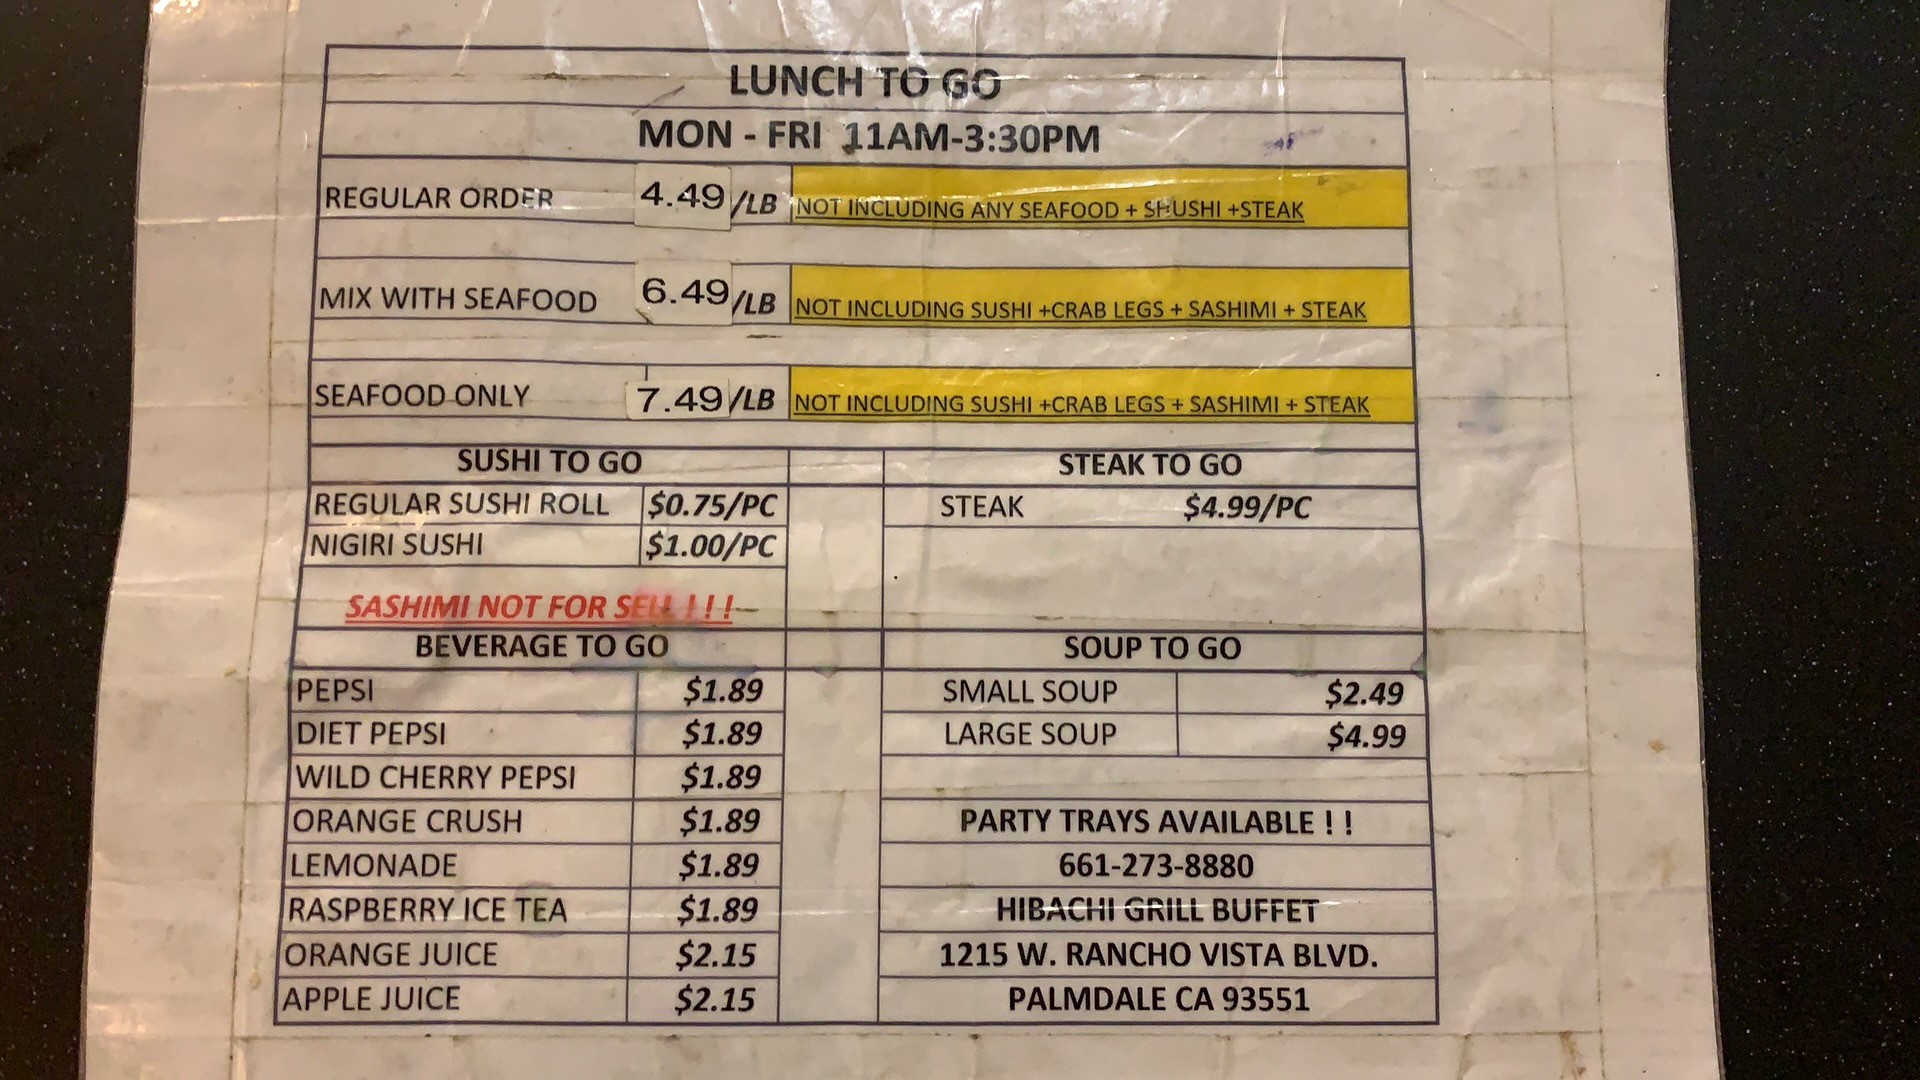 LUNCH TO GO
MON - FRI 11AM-3:30PM
REGULAR ORDER 4.49 /LB NOT INCLUDING ANY SEAFOOD + SHUSHI +STEAK
MIX WITH SEAFOOD 6.49 /LB NOT INCLUDING SUSHI +CRAB LEGS + SASHIMI + STEAK
SEAFOOD ONLY 7.49 /LB NOT INCLUDING SUSHI +CRAB LEGS + SASHIMI + STEAK
SUSHI TO GO STEAK TO GO
REGULAR SUSHI ROLL $0.75/PC STEAK $4.99/PC
NIGIRI SUSHI $1.00/PC
SASHIMI NOT FOR SELL ! ! !
BEVERAGE TO GO SOUP TO GO
PEPSI $1.89 SMALL SOUP $2.49
DIET PEPSI $1.89 LARGE SOUP $4.99
WILD CHERRY PEPSI $1.89
ORANGE CRUSH $1.89 PARTY TRAYS AVAILABLE ! !
LEMONADE $1.89 661-273-8880
RASPBERRY ICE TEA $1.89 HIBACHI GRILL BUFFET
ORANGE JUICE $2.15 1215 W. RANCHO VISTA BLVD.
APPLE JUICE $2.15 PALMDALE CA 93551